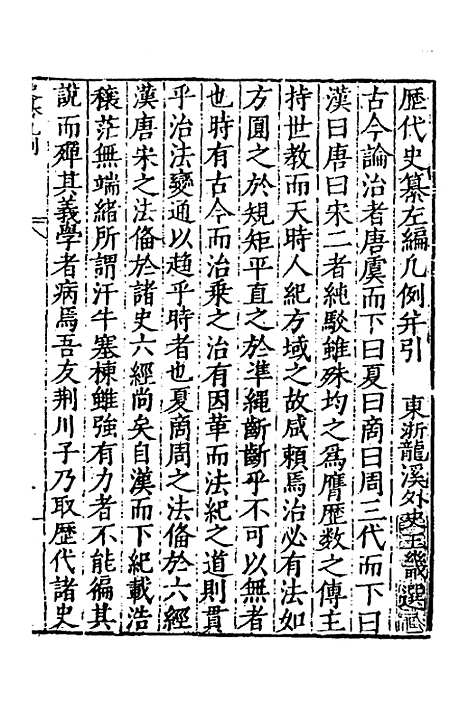 歷代史纂左編凡例并引　東浙龍溪外史王畿選
古今論治者唐虞而下曰夏曰商曰周三代而下曰
漢曰唐曰宋二者純駁雖殊均之爲膺歷數之傳主
持世教而天時人紀方域之故咸賴焉治必有法如
方圓之於規矩平直之於准繩斷斷乎不可以無者
也時有古今而治乘之治有因革而法紀之道則貫
乎治法變通以趨乎時者也夏商周之法俻於六經
漢唐宋之法俻於諸史六經尚矣自漢而下紀載浩
穰茫無端緒所謂汗牛塞棟雖強有力者不能徧其
說而殫其義學者病焉吾友荆川子乃取歷代諸史